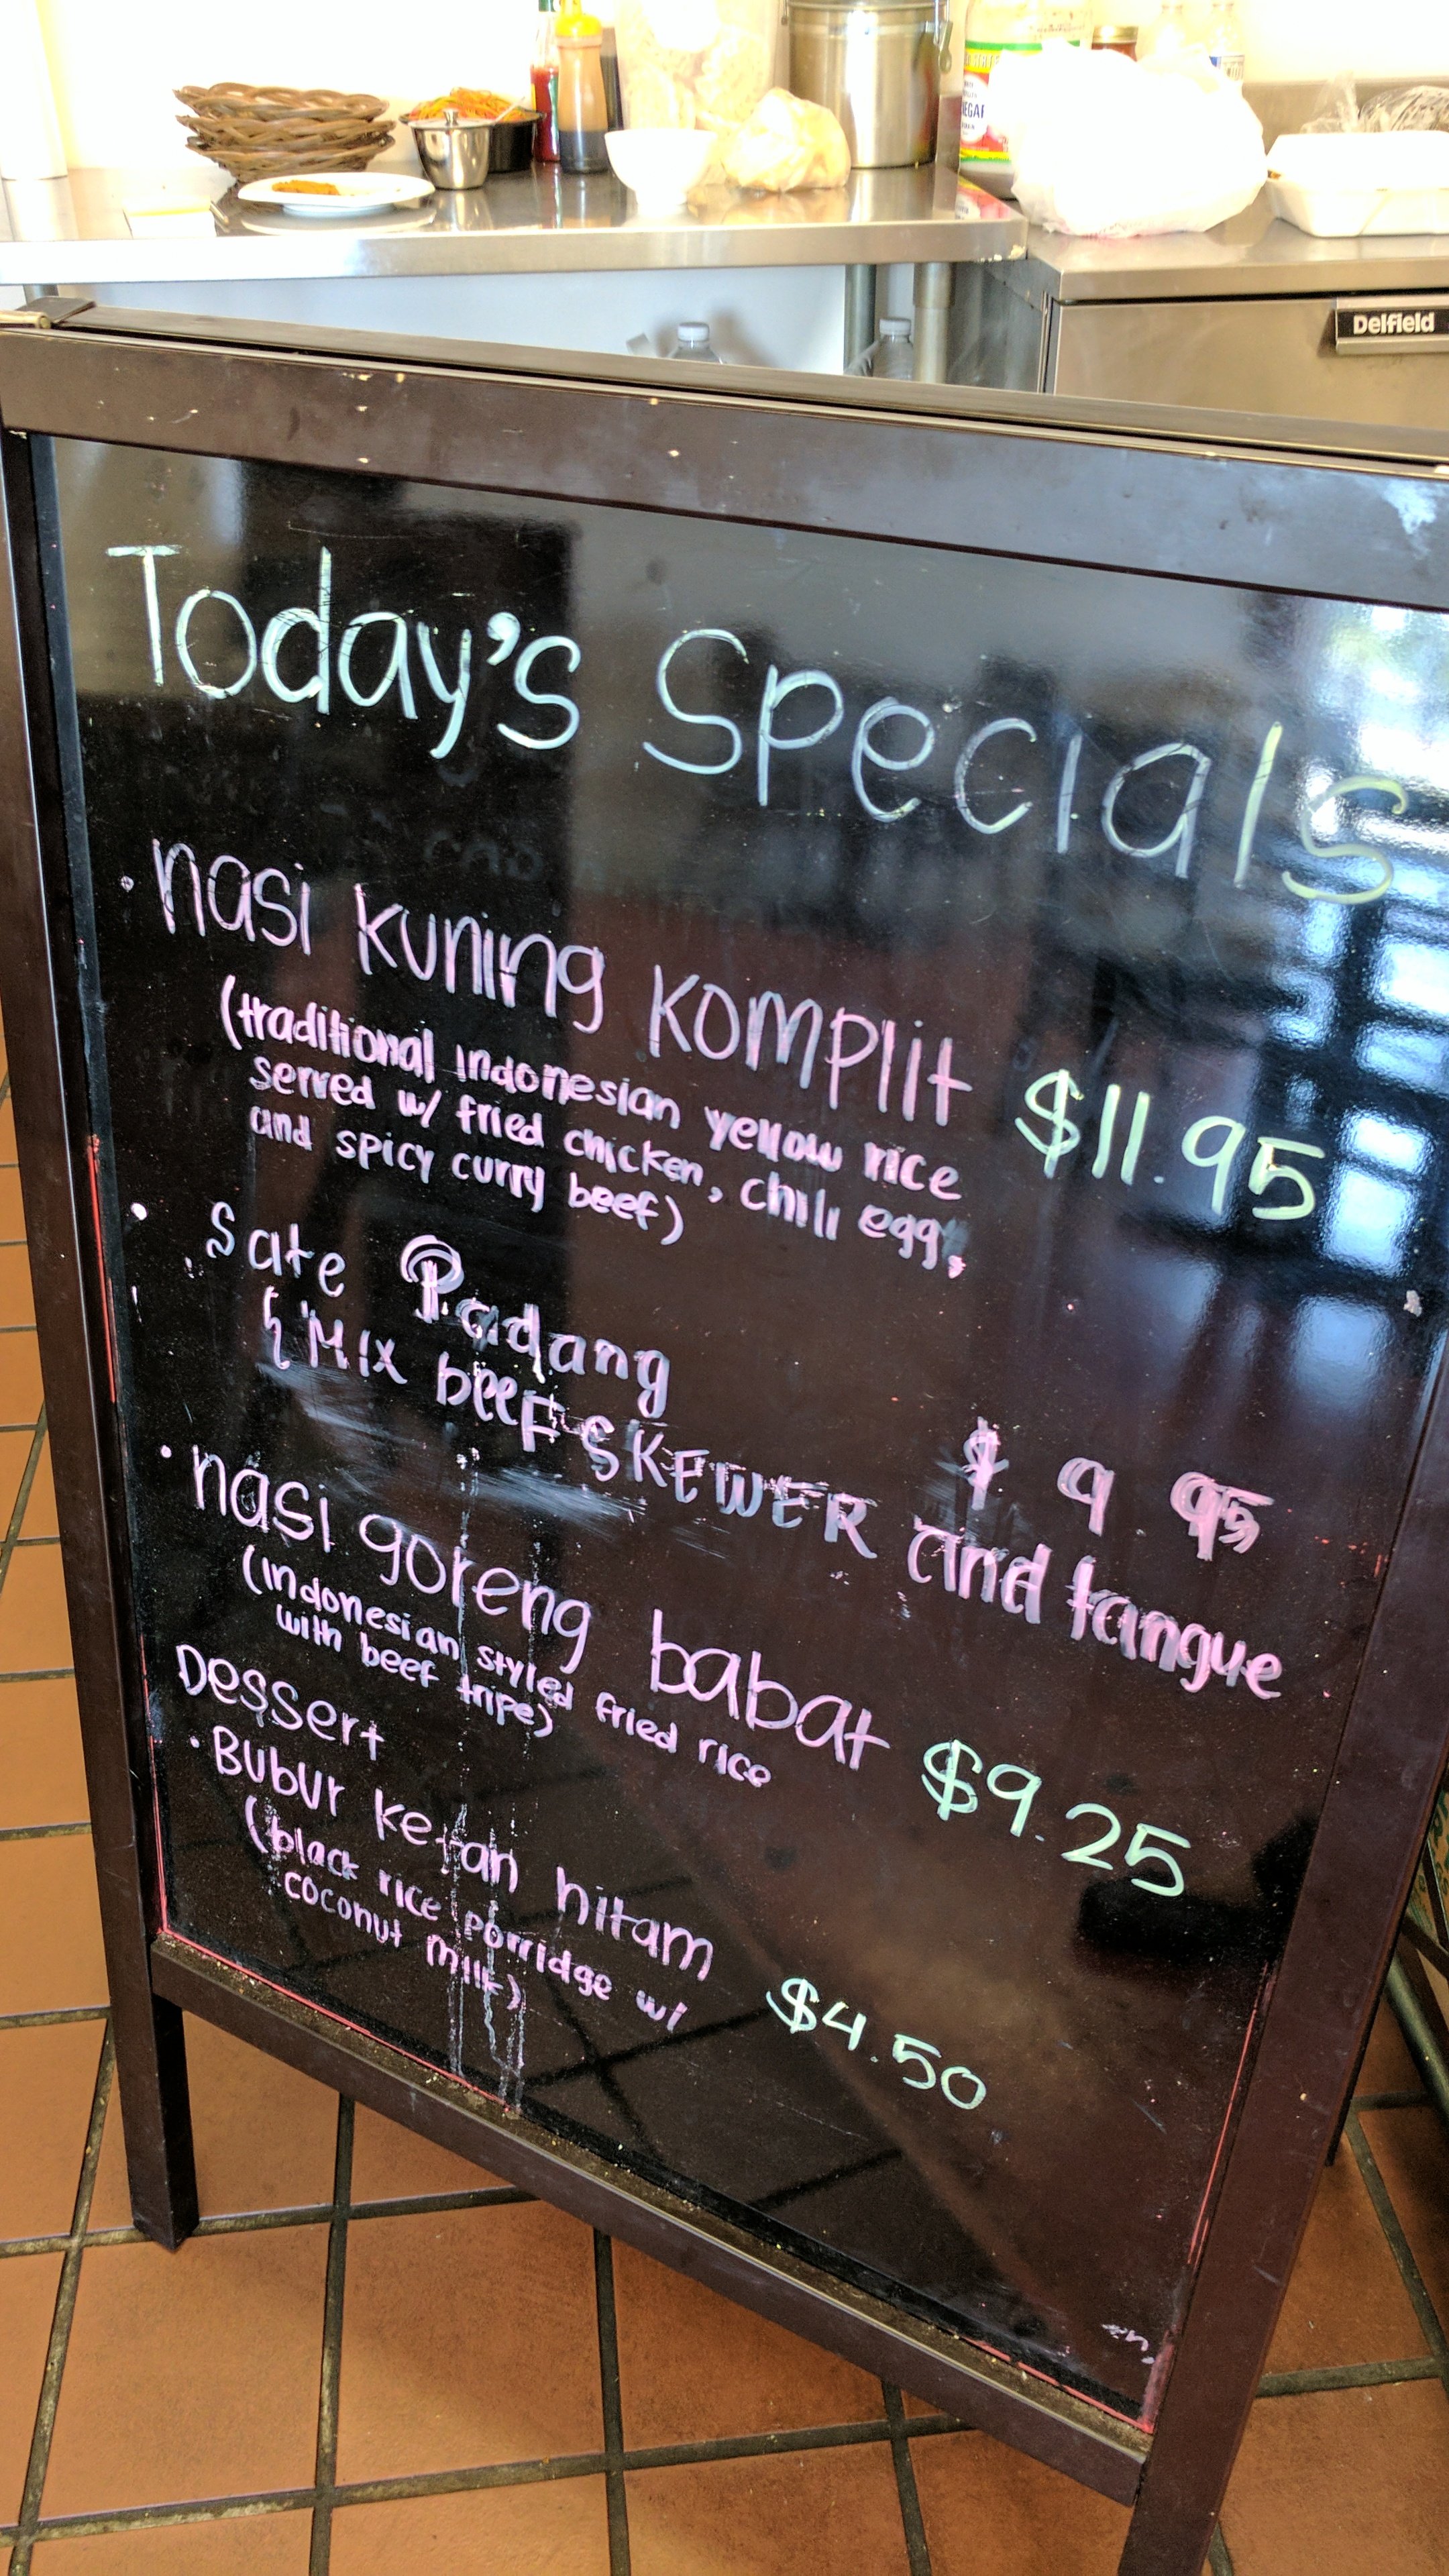 Delfield
Today's Specials
· nasi kuning komplit $11.95
(traditional Indonesian yellow rice
served w/ fried chicken, chili egg,
and spicy curry beef)
· sate Padang $ 9 95
(MIX beef SKEWER and tangue
· nasi goreng babat $9.25
(indonesian styled fried rice
with beef tripe)
Dessert
· Bubur ketan hitam $4.50
(black rice porridge w/
coconut milk)